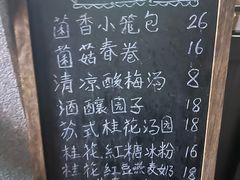 茴香小笼包 26
菌菇春卷 16
清凉酸梅汤 8
酒酿园子 18
苏式桂花汤圆 18
桂花红糖冰粉 16
桂花红豆燕麦奶 18